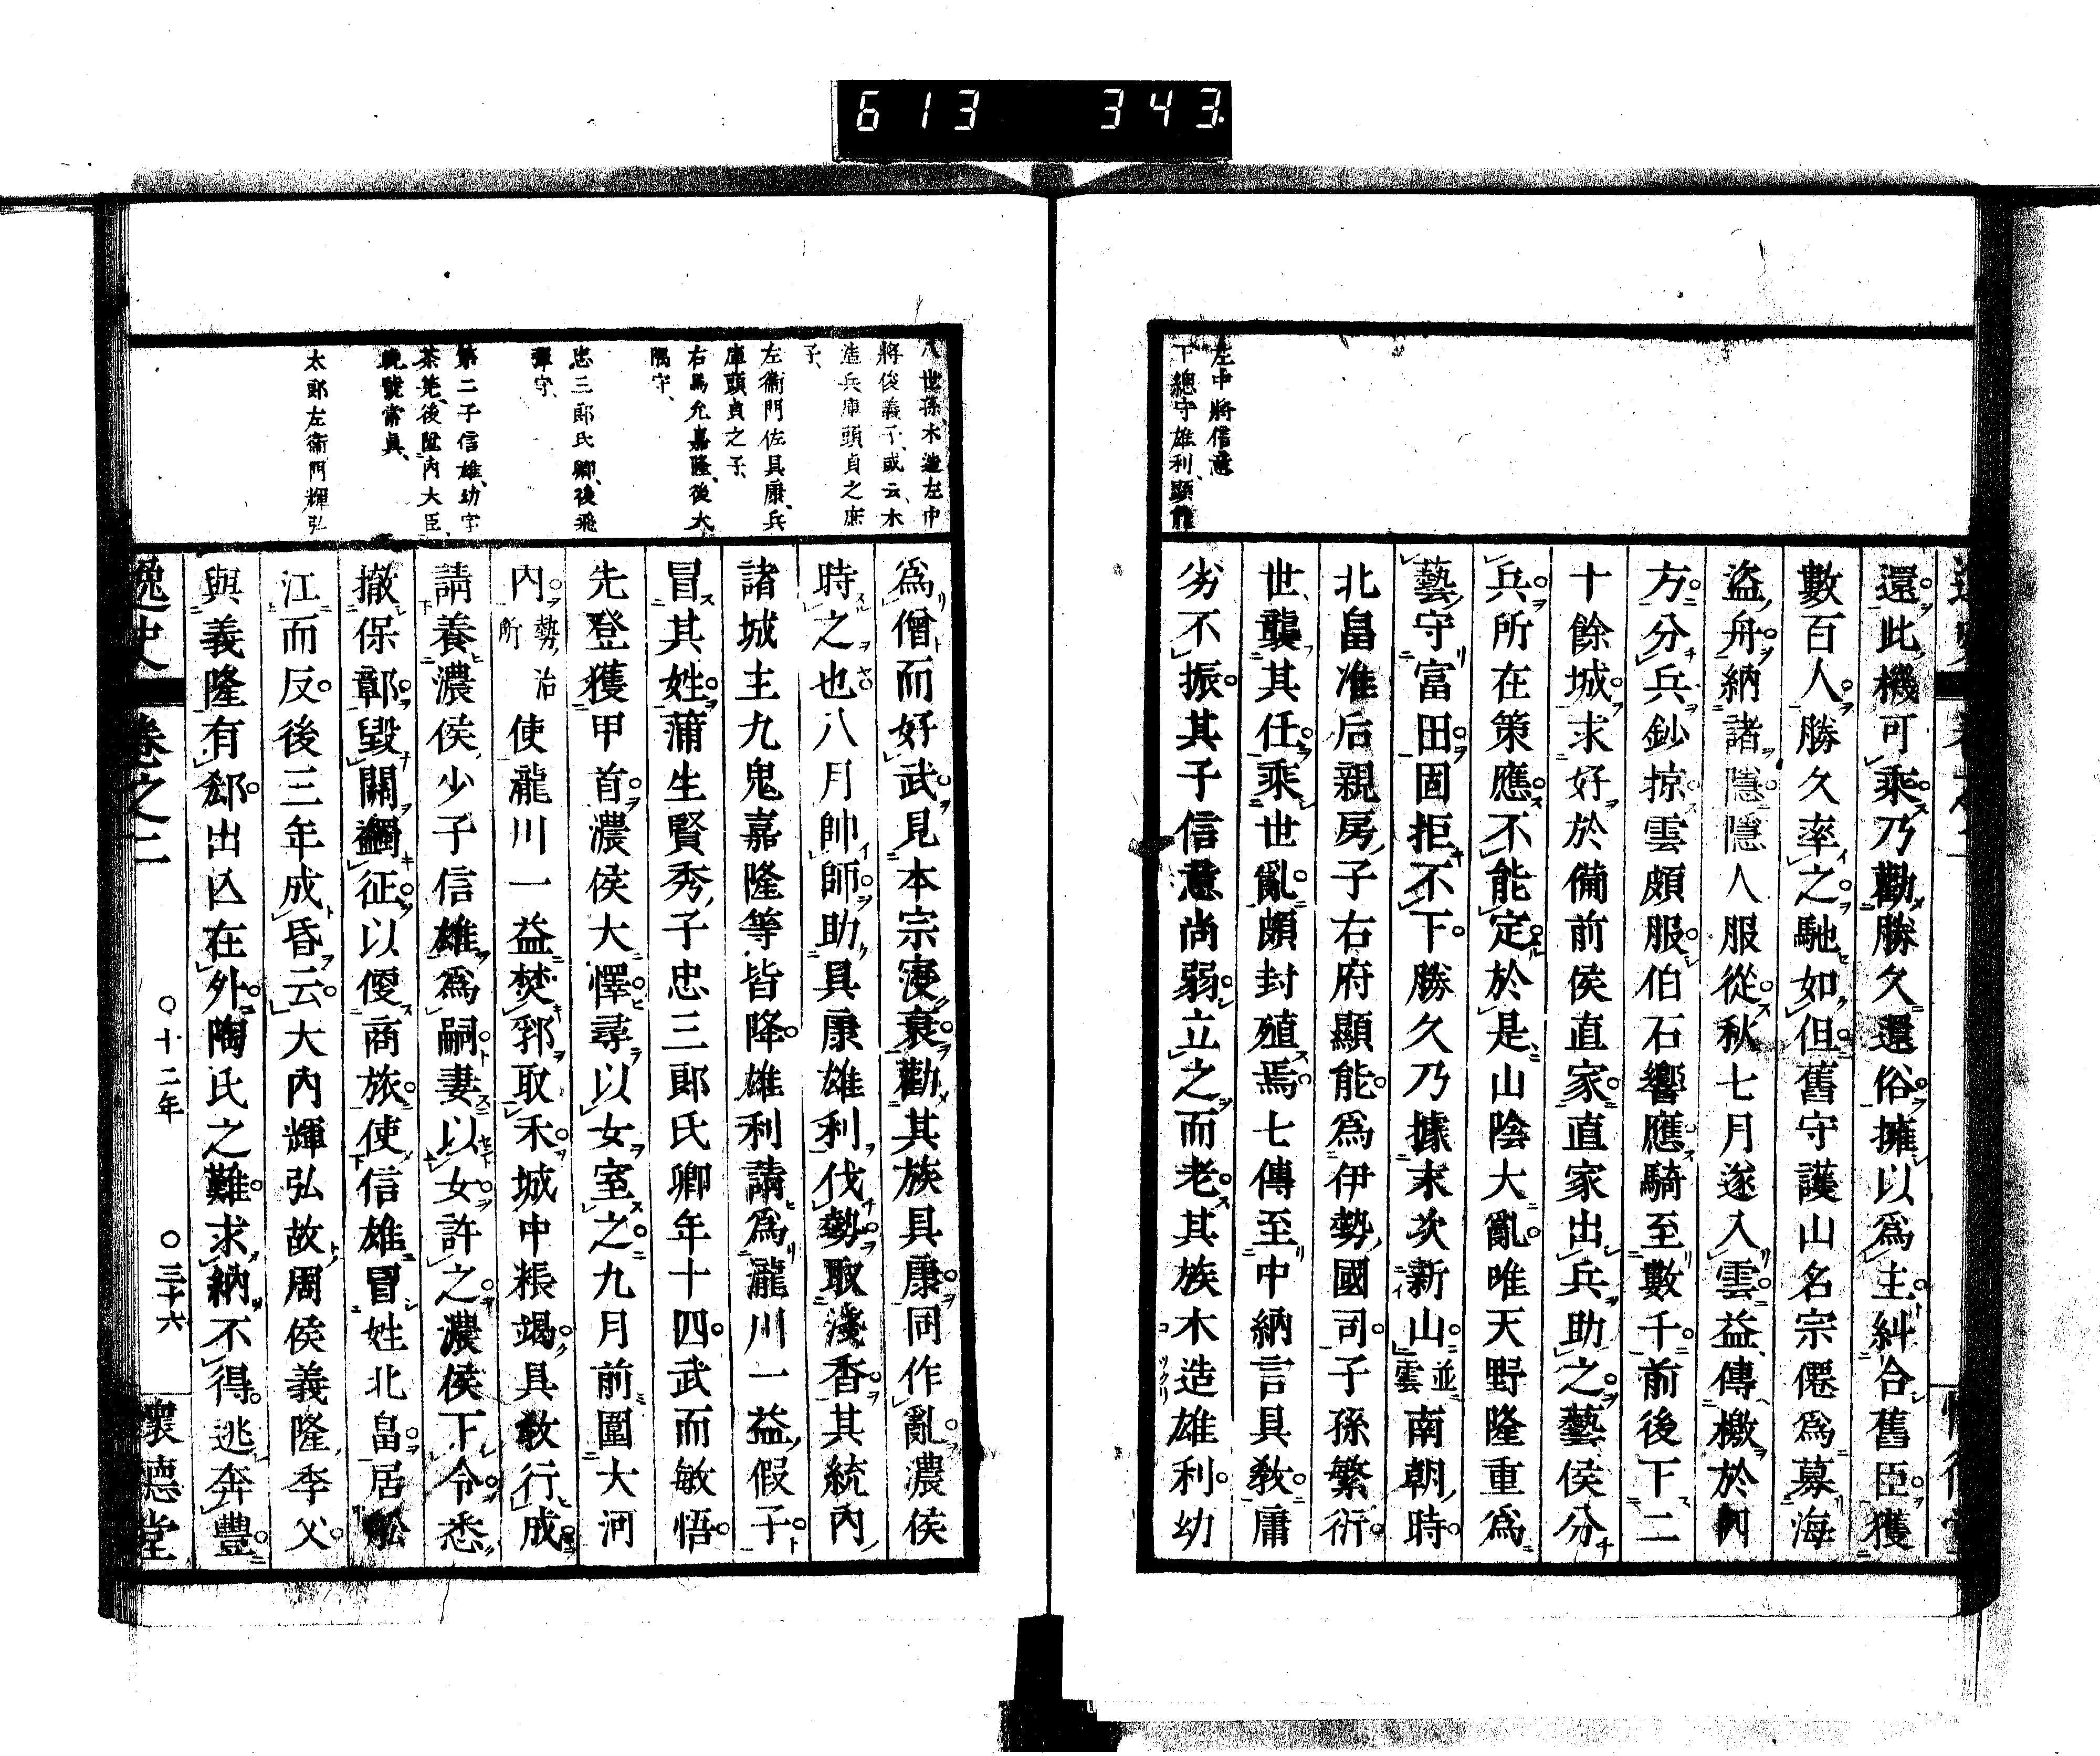 613 343
左中將信意
下總守雄利、顯能
還此機可乘乃勸勝久還俗擁以爲主糾合舊臣獲
數百人勝久率之馳如但舊守護山名宗僊爲募海
盜舟納諸隱隱人服從秋七月遂入雲益傳檄於四
方分兵鈔掠雲頗服伯石響應騎至數千前後下二
十餘城求好於備前侯直家直家出兵助之藝侯分
兵所在策應不能定於是山陰大亂唯天野隆重爲
藝守富田固拒不下勝久乃據末次新山並雲南朝時
北畠准后親房子右府顯能爲伊勢國司子孫繁衍
世襲其任乘世亂頗封殖焉七傳至中納言具敎庸
劣不振其子信意尚弱立之而老其族木造雄利幼
八世孫、木造左中
將俊義子、或云、木
造兵庫頭貞之庶
子、
左衞門佐具康、兵
庫頭貞之子、
右馬允嘉隆、後大
隅守、
忠三郎氏卿、後飛
彈守、
第二子信雄、幼字
茶筅、後陞內大臣、
晩號常眞、
太郎左衞門輝弘
爲僧而好武見本宗寖衰勸其族具康同作亂濃侯
時之也八月帥師助具康雄利伐勢取淺香其統內
諸城主九鬼嘉隆等皆降雄利請爲瀧川一益假子
冒其姓蒲生賢秀子忠三郎氏卿年十四武而敏悟
先登獲甲首濃侯大懌尋以女室之九月前圍大河
內勢治所使瀧川一益焚郛取禾城中粻竭具敎行成
請養濃侯少子信雄爲嗣妻以女許之濃侯下令悉
撤保鄣毀關蠲征以優商旅使信雄冒姓北畠居松
江而反後三年成昏云大內輝弘故周侯義隆季父
與義隆有郄出亾在外陶氏之難求納不得逃奔豐
逸史 卷之二 ○十二年 ○三十六 懷德堂